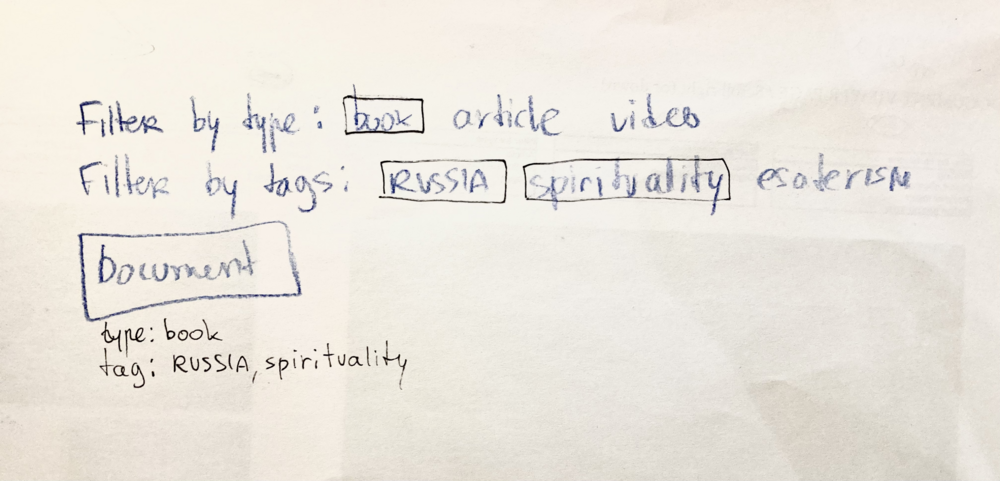 Filter by type: book article video
Filter by tags: RUSSIA spirituality esoterism
Document
type: book
tag: RUSSIA, spirituality